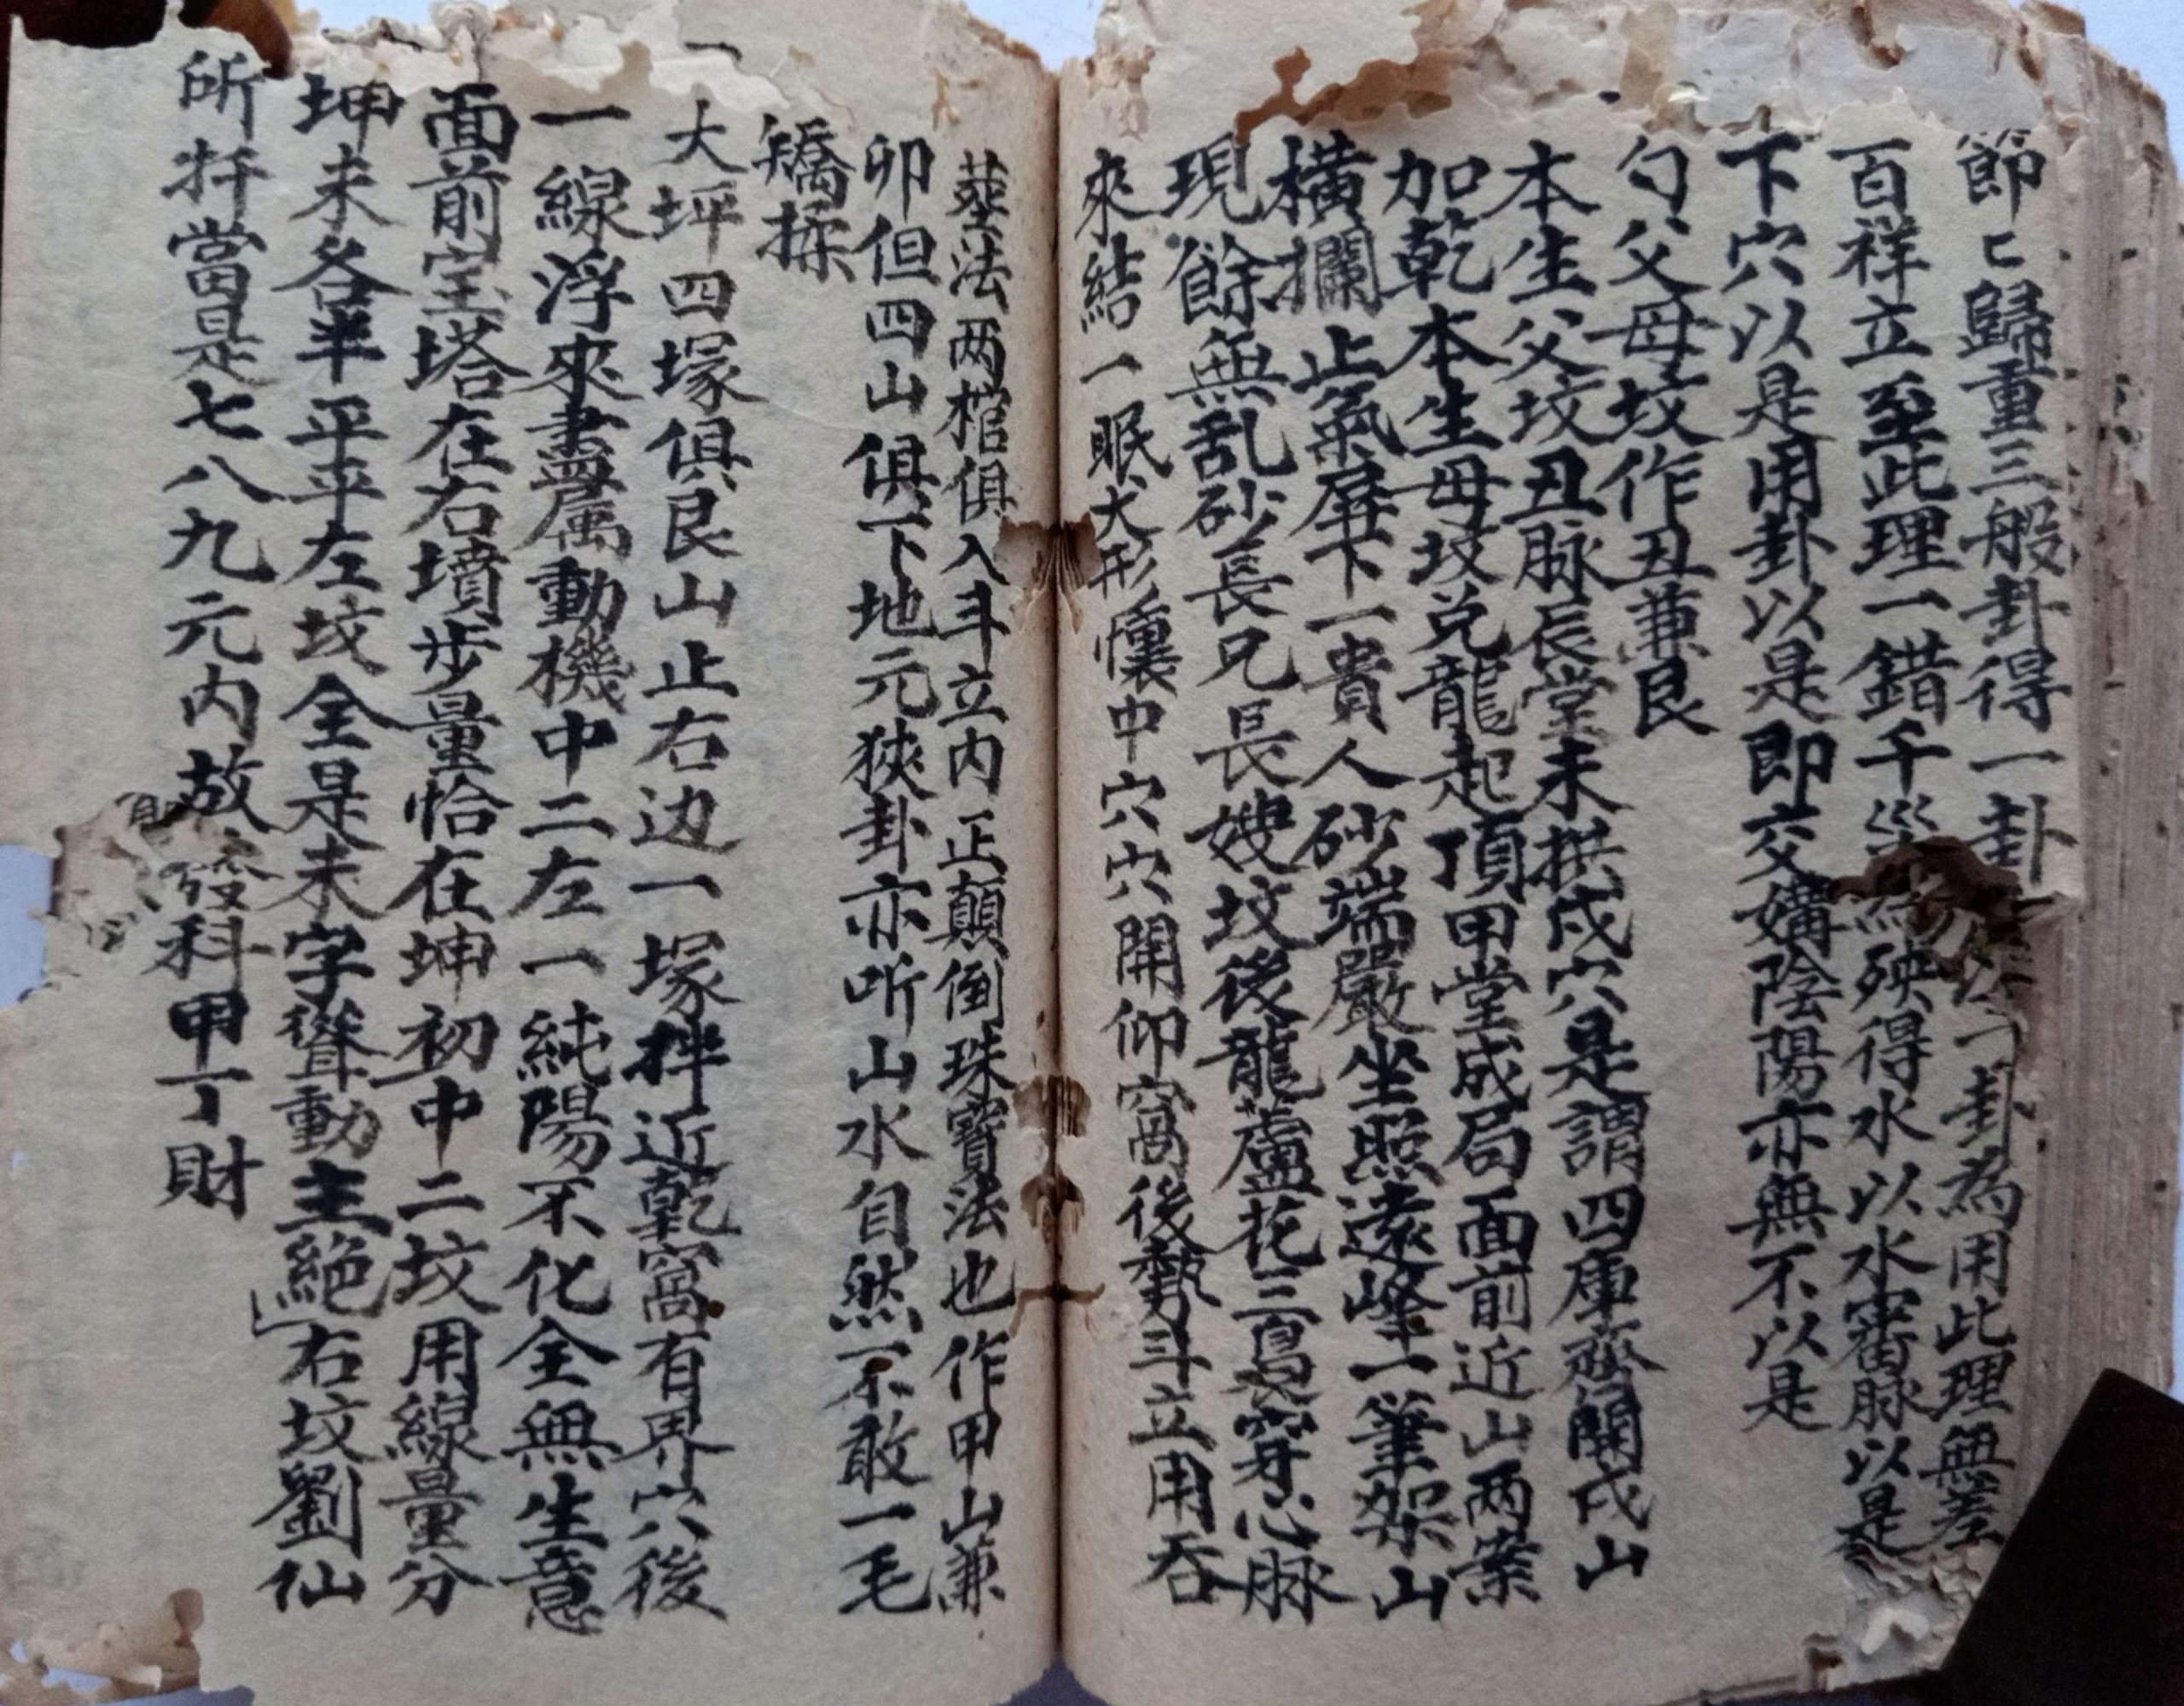 節〻歸重三般卦得一卦一卦為用此理無差
百祥立至此理一錯千殃得水以水審脉以是
下穴以是用卦以是即交媾陰陽亦無不以是
勻父母坟作丑兼艮
本生父坟丑脉辰堂未拱戌穴是謂四庫齊開戌山
加乾本生母坟兑龍起頂甲堂成局面前近山两案
橫攔止氣屏下一貴人砂端嚴坐照遠峰一筆架山
現餘無乱砂長兄長嫂坟後龍蘆花三裊穿心脉
來結一眠犬形懷中穴穴開仰窩後勢斗立用吞
塟法两棺俱入斗立内正顛倒珠寶法也作甲山兼
卯但四山俱下地元狹卦亦听山水自然一不敢一毛
矯揉
大坪四塚俱艮山止右边一塚拌近乾窩有界穴後
一線浮來盡属動機中二左一純陽不化全無生意
面前宝塔在右墳步量恰在坤初中二坟用線量分
坤未各半平平左坟全是未字聳動主絕右坟劉仙
所扦當是七八九元内放發科甲丁財